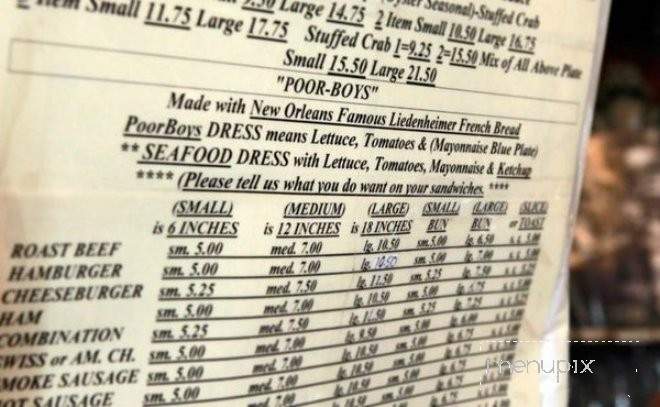 9.50 Large 14.75 2 Item Small 10.50 Large 16.75
Item Small 11.75 Large 17.75 Stuffed Crab 1=9.25 2=15.50 Mix of All Above Plate
Seasonal)-Stuffed Crab
Small 15.50 Large 21.50
"POOR-BOYS"
Made with New Orleans Famous Liedenheimer French Bread
PoorBoys DRESS means Lettuce, Tomatoes & (Mayonnaise Blue Plate)
** SEAFOOD DRESS with Lettuce, Tomatoes, Mayonnaise & Ketchup
**** (Please tell us what you do want on your sandwiches. ****
(SMALL) (MEDIUM) (LARGE) (SMALL) (LARGE) (SLICE)
is 6 INCHES is 12 INCHES is 18 INCHES BUN BUN or TOAST
ROAST BEEF sm. 5.00 med. 7.00 lg. 10.50 sm. 5.00 lg. 6.50 s.l. 5.00
HAMBURGER sm. 5.00 med. 7.00 lg. 10.50 sm. 5.00 lg. 7.00
CHEESEBURGER sm. 5.25 med. 7.50 lg. 11.50 sm. 5.25 lg. 7.50
HAM sm. 5.00 med. 7.00 lg. 10.50 sm. 5.00 lg. 6.75
COMBINATION sm. 5.25 med. 7.50 lg. 11.50 sm. 5.25 lg. 7.25
SWISS or AM. CH. sm. 5.00 med. 7.00 lg. 9.50 sm. 5.00 lg. 6.00
SMOKE SAUSAGE sm. 5.00 med. 7.00 lg. 10.50 sm. 5.00 lg. 6.75
HOT SAUSAGE sm. 5.00 med. 7.00 lg. 10.50
menupix